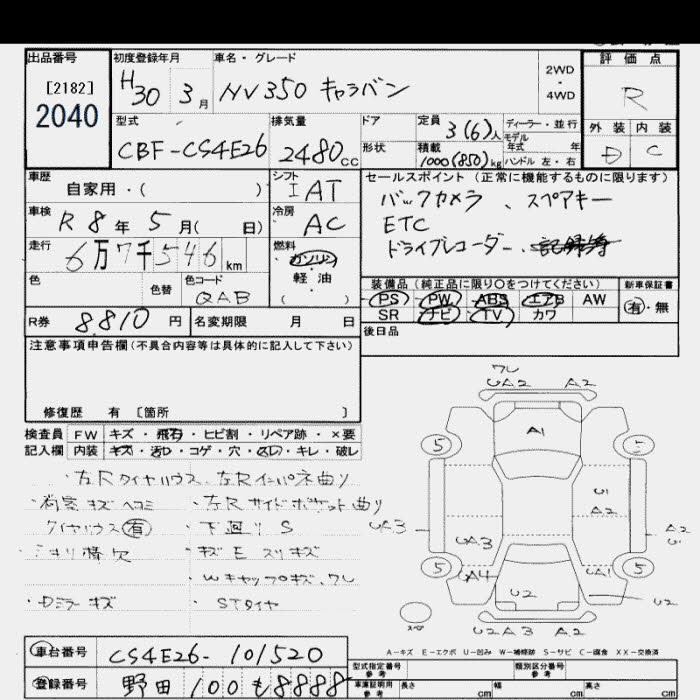 出品番号
[2182]
2040
初度登録年月
H30 3月
車名・グレード
NV350 キャラバン
2WD
・
4WD
評価点
R
外装 内装
D C
型式
CBF-CS4E26
排気量
2480cc
ドア
形状
定員 3(6)人
積載 1000(850)kg
ディーラー・並行
モデル
年式 年
ハンドル 左・右
車歴
自家用・( )
シフト
IAT
車検
R8年5月( 日)
冷房
AC
走行
6万7千546km
燃料
ガソリン
軽油
( )
色
色替
色コード
QAB
R券 8,810円
名変期限 月 日
セールスポイント(正常に機能するものに限ります)
バックカメラ、スペアキー
ETC
ドライブレコーダー、記録簿
装備品(純正品に限り○をつけてください)
新車保証書
PS PW ABS エアB AW
SR ナビ TV カワ
有・無
後日品
注意事項申告欄(不具合内容等は具体的に記入して下さい)
修復歴 有 〔箇所 〕
検査員 FW キズ・飛石・ヒビ割・リペア跡・×要
記入欄 内装 キズ・汚レ・コゲ・穴・スレ・キレ・破レ
・左Rタイヤハウス、左Rインパネ曲り
・荷室キズヘコミ
・左Rサイドポケット曲り
タイヤハウス有
・下廻りS
・キズEスリキズ
・Wキャップキズ、ワレ
・Dミラーキズ
・STタイヤ
ワレ
UA2 A2
A1
5 5
U1
A2
UA3
A2
U1
UA3
5 5
UA4
UA1
U2
U2
スペア
U2A3 A2
A-キズ E-エクボ U-凹み W-補修跡 S-サビ C-腐食 XX-交換済
車台番号 CS4E26-101520
登録番号 野田 100 も8888
型式指定番号
参考
類別区分番号
参考
車庫証明用
参考
長さ cm 幅 cm 高さ cm